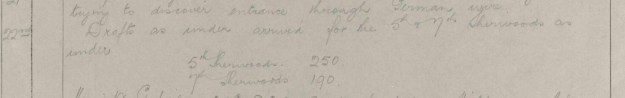 trying to discover entrance through German wire
22nd Drafts as under arrived for the 5th & 7th Sherwoods as
under
5th Sherwoods. 250.
7th Sherwoods 190.